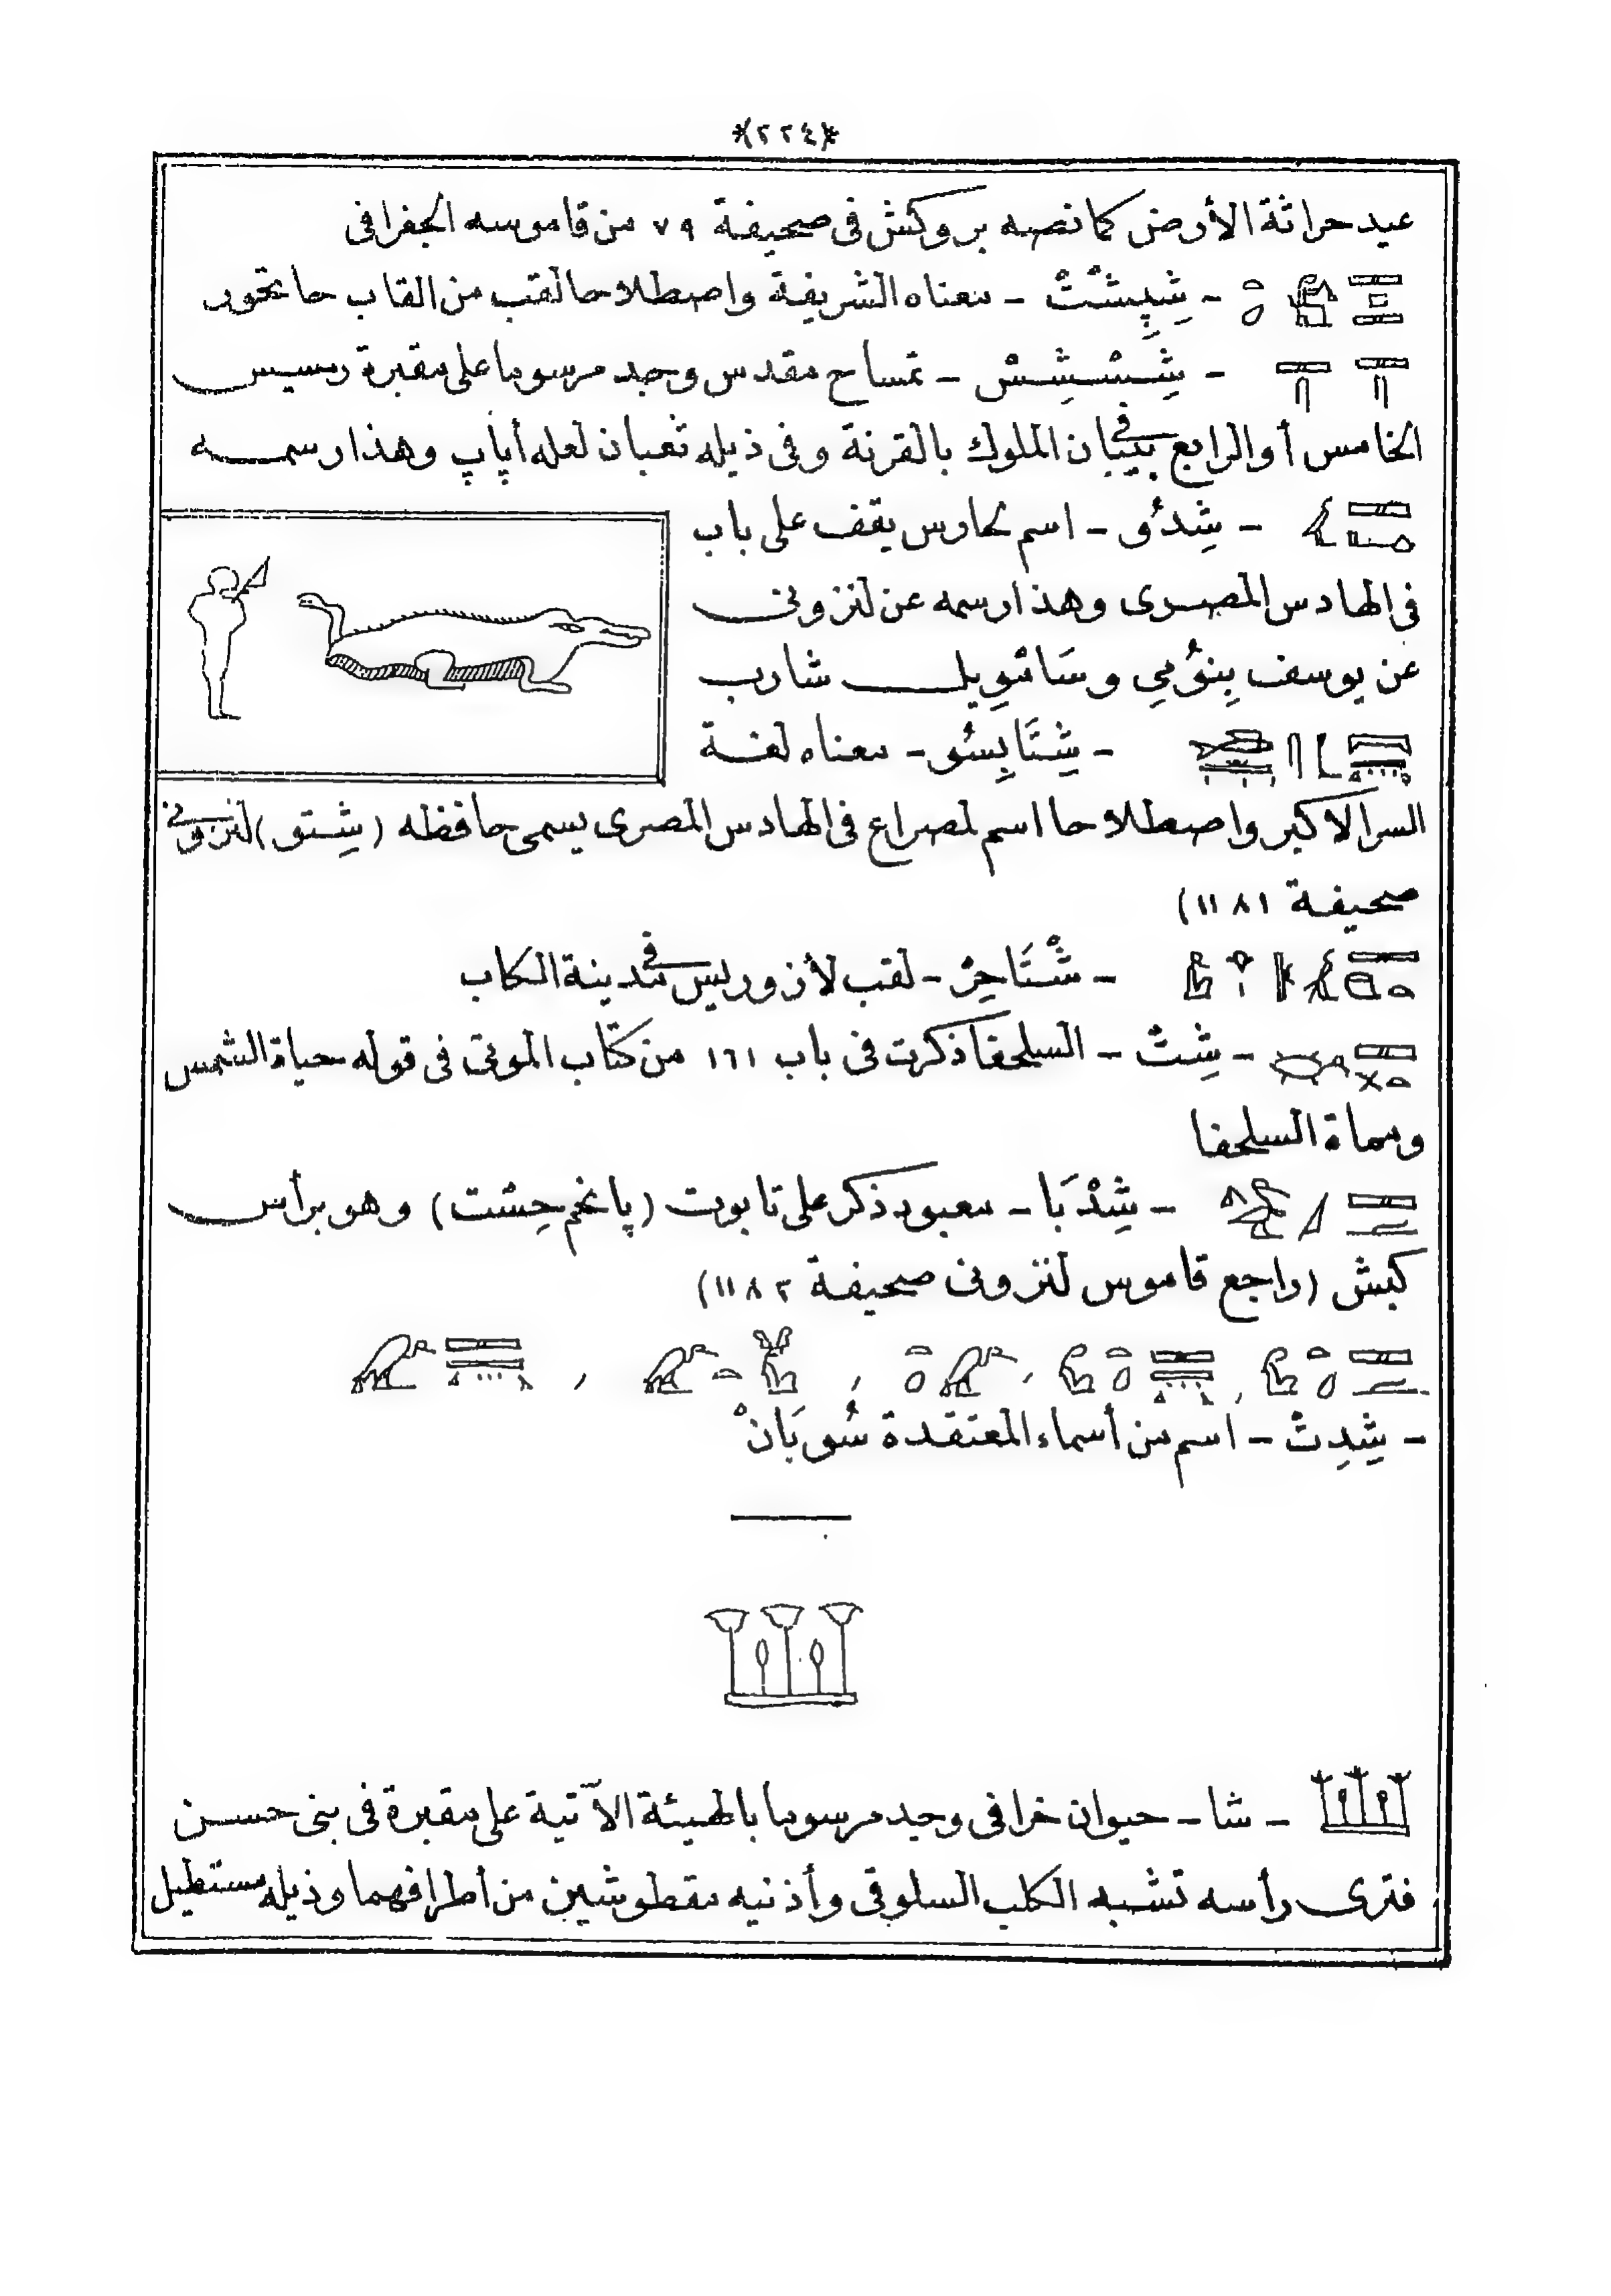 *(٢٢٤)*
عيد حراثة الأرض كما نصه بروكش فى صحيفة ٧٩ من قاموسه الجغرافى
- شِپِشْتْ - معناه الشريفة واصطلاحا لقب من القاب حاتحور
- شِسْشِسْ - تمساح مقدس وجد مرسوما على مقبرة رمسيس
الخامس أو الرابع فى بيبان الملوك بالقرنة وفى ذيله ثعبان لعله أپاپ وهذا رسمه
- شِدئو - اسم لحارس يقف على باب
فى الهادس المصرى وهذا رسمه عن لنزونى
عن يوسف بِنؤمِي وسَامْوِيل شارب
- شِتَابِسُو - معناه لغة
السر الاكبر واصطلاحا اسم لمصراع فى الهادس المصرى يسمى حافظه (شِتو) لنزونى
صحيفة ١١٨١)
- شْتَاحِرْ - لقب لأزوريس فى مدينة الكاب
- شِتْ - السلحفا ذكرت فى باب ١٦١ من كتاب الموتى فى قوله حياة الشمس
ومماة السلحفا
- شِدْبَا - معبود ذكر على تابوت (پانخم حِسْت) وهو برأس
كبش (راجع قاموس لنزونى صحيفة ١١٨٢)
- شِدِتْ - اسم من أسماء المعتقدة سُوبَانْ
- شا - حيوان خرافى وجد مرسوما بالهيئة الآتية على مقبرة فى بنى حسن
فترى رأسه تشبه الكلب السلوقى وأذنيه مقطوشين من أطرافهما وذيله مستطيل